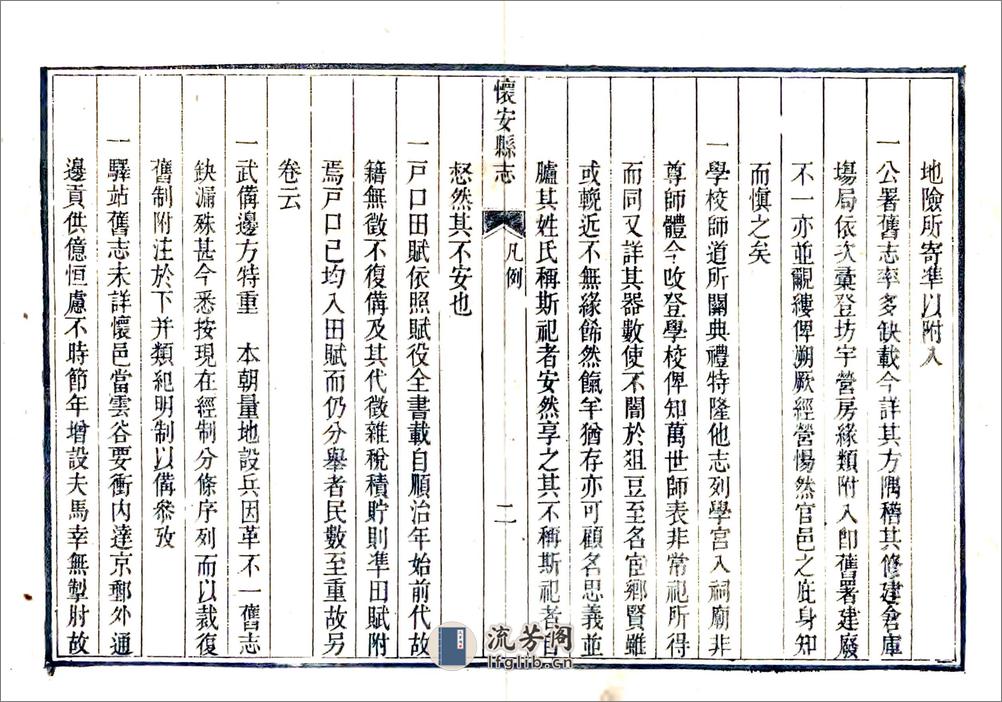 地險所寄準以附入
一公署舊志率多缺載今詳其方隅稽其修建倉庫
塲局依次彙登坊宇營房緣類附入卽舊署建廢
不一亦並覼縷俾朔厥經營惕然官邑之庇身知
而慎之矣
一學校師道所關典禮特隆他志列學宮入祠廟非
尊師體今攺登學校俾知萬世師表非常祀所得
而同又詳其器數使不闇於俎豆至名宦鄉賢雖
或輓近不無緣餙然餼羊猶存亦可顧名思義並
臚其姓氏稱斯祀者安然享之其不稱斯祀者皆
懷安縣志
凡例
二
愁然其不安也
一戸口田賦依照賦役全書載自順治年始前代故
籍無徵不復備及其代徵雜稅積貯則準田賦附
焉戸口已均入田賦而仍分舉者民數至重故另
卷云
一武備邊方特重 本朝量地設兵因革不一舊志
缺漏殊甚今悉按現在經制分條序列而以裁復
舊制附注於下并類紀明制以備叅攷
一驛站舊志未詳懷邑當雲谷要衝内達京郵外通
邊貢供億恒慮不時節年增設夫馬幸無掣肘故
流芳阁
lfglib.cn